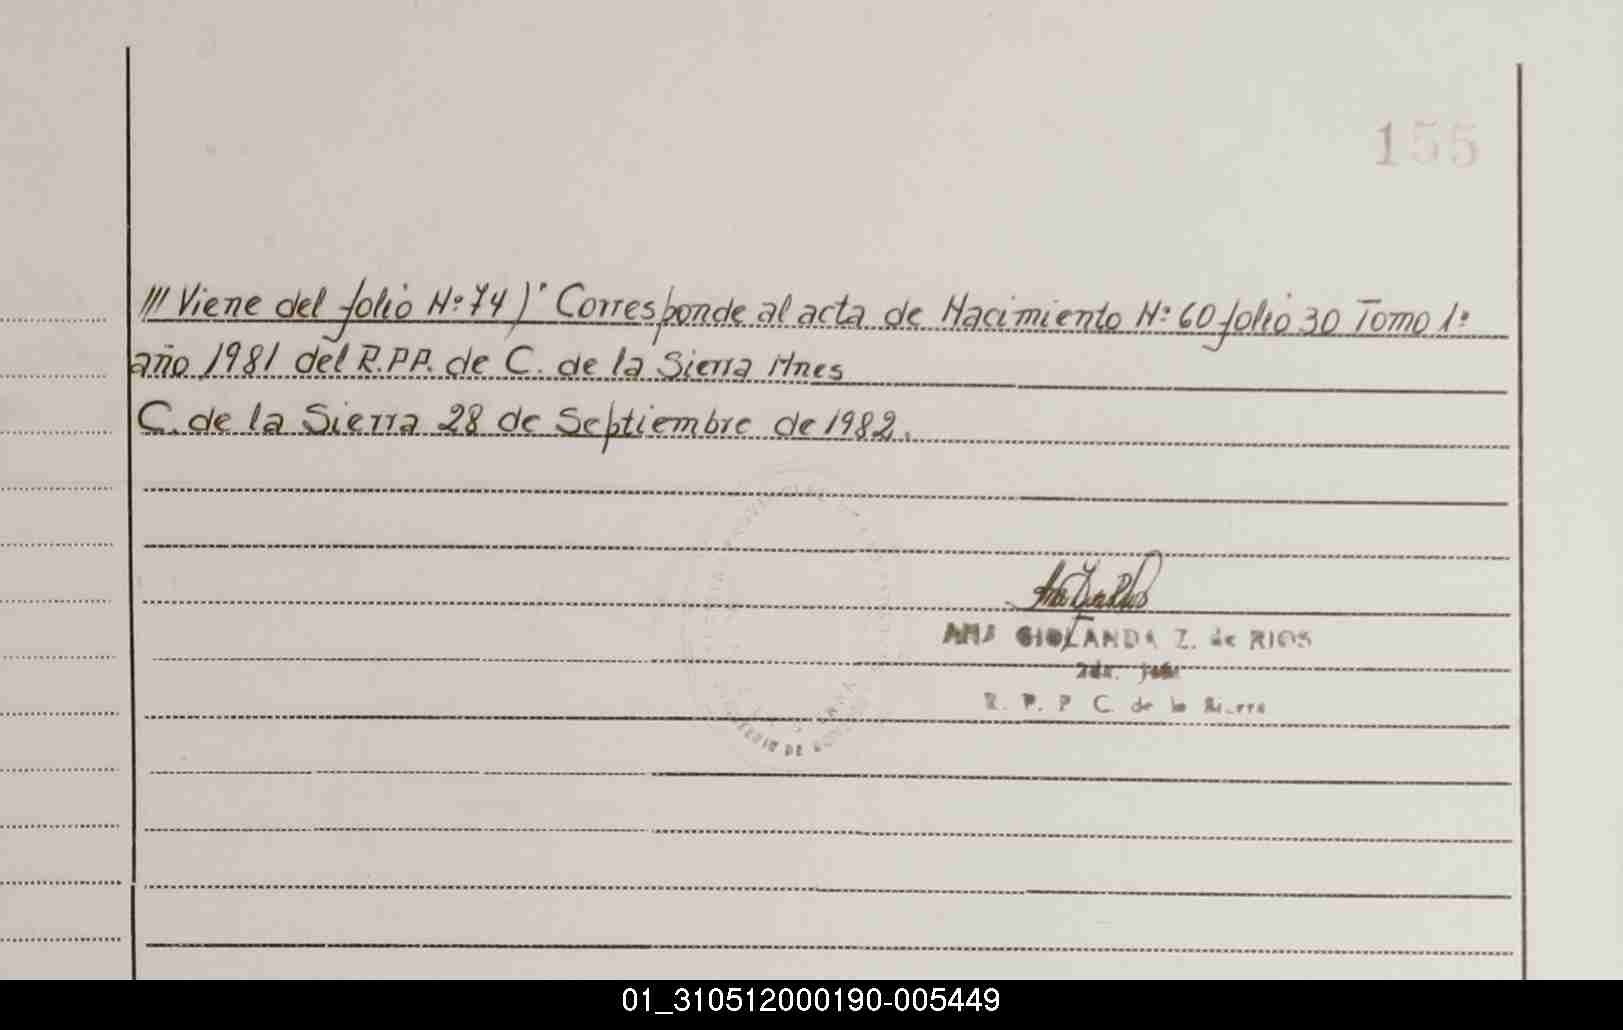 155
/// Viene del folio Nº 74)' Corresponde al acta de Nacimiento Nº 60 folio 30 Tomo 1º
año 1981 del R.PP. de C. de la Sierra Mnes
C. de la Sierra 28 de Septiembre de 1982.
ANA GIOLANDA Z. de RIOS
R. P. P C. de la Sierra
01_310512000190-005449